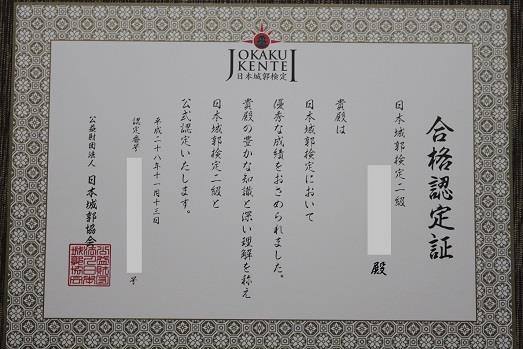 JOKAKU
KENTEI
日本城郭検定
合格認定証
日本城郭検定二級
殿
貴殿は
日本城郭検定において
優秀な成績をおさめられました。
貴殿の豊かな知識と深い理解を称え
日本城郭検定二級と
公式認定いたします。
平成二十八年十一月十三日
認定番号
号
公益財団法人 日本城郭協会